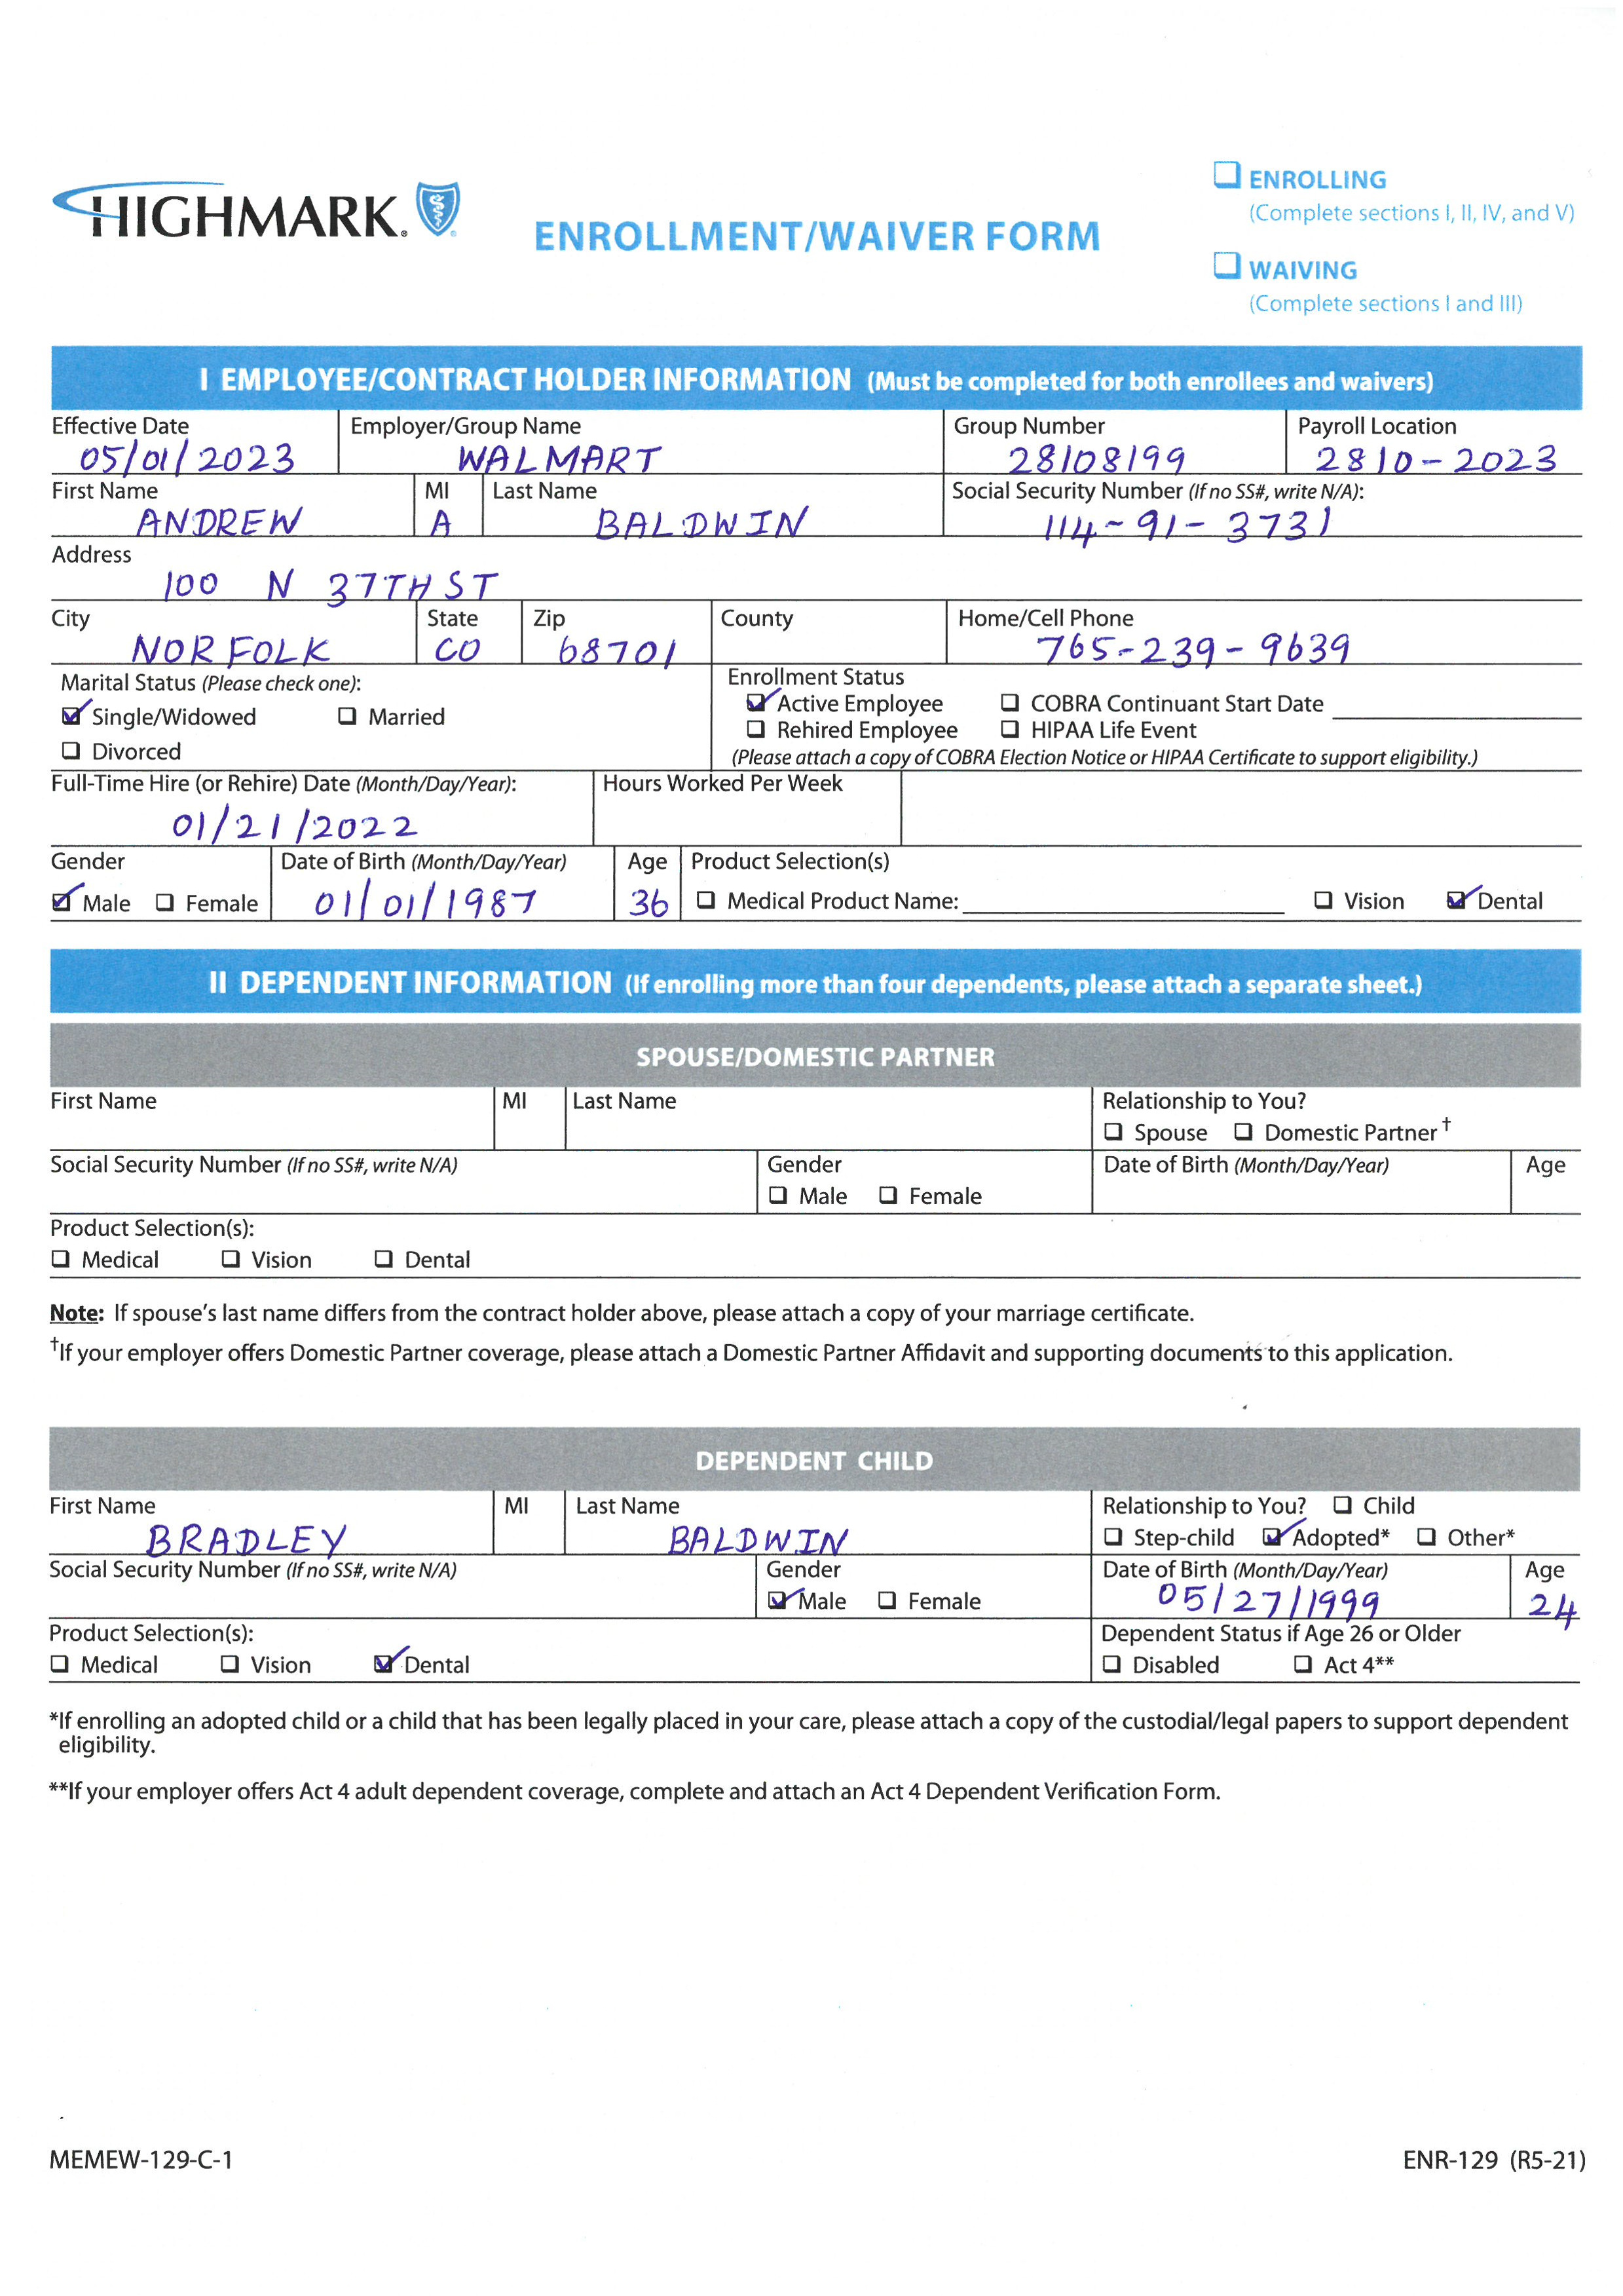 HIGHMARK.
ENROLLMENT/WAIVER FORM
❑ ENROLLING
(Complete sections I, II, IV, and V)
❑ WAIVING
(Complete sections I and III)
I EMPLOYEE/CONTRACT HOLDER INFORMATION (Must be completed for both enrollees and waivers)
Effective Date Employer/Group Name Group Number Payroll Location
05/01/2023 WALMART 28108199 2810-2023
First Name MI Last Name Social Security Number (If no SS#, write N/A):
ANDREW A BALDWIN 114-91-3731
Address
100 N 37TH ST
City State Zip County Home/Cell Phone
NORFOLK CO 68701 765-239-9639
Marital Status (Please check one): Enrollment Status
☑ Single/Widowed ❑ Married ☑ Active Employee ❑ COBRA Continuant Start Date
❑ Divorced ❑ Rehired Employee ❑ HIPAA Life Event
(Please attach a copy of COBRA Election Notice or HIPAA Certificate to support eligibility.)
Full-Time Hire (or Rehire) Date (Month/Day/Year): Hours Worked Per Week
01/21/2022
Gender Date of Birth (Month/Day/Year) Age Product Selection(s)
☑ Male ❑ Female 01/01/1987 36 ❑ Medical Product Name: ❑ Vision ☑ Dental
II DEPENDENT INFORMATION (If enrolling more than four dependents, please attach a separate sheet.)
SPOUSE/DOMESTIC PARTNER
First Name MI Last Name Relationship to You?
❑ Spouse ❑ Domestic Partner†
Social Security Number (If no SS#, write N/A) Gender Date of Birth (Month/Day/Year) Age
❑ Male ❑ Female
Product Selection(s):
❑ Medical ❑ Vision ❑ Dental
Note: If spouse's last name differs from the contract holder above, please attach a copy of your marriage certificate.
†If your employer offers Domestic Partner coverage, please attach a Domestic Partner Affidavit and supporting documents to this application.
DEPENDENT CHILD
First Name MI Last Name Relationship to You? ❑ Child
BRADLEY BALDWIN ❑ Step-child ☑ Adopted* ❑ Other*
Social Security Number (If no SS#, write N/A) Gender Date of Birth (Month/Day/Year) Age
☑ Male ❑ Female 05/27/1999 24
Product Selection(s): Dependent Status if Age 26 or Older
❑ Medical ❑ Vision ☑ Dental ❑ Disabled ❑ Act 4**
*If enrolling an adopted child or a child that has been legally placed in your care, please attach a copy of the custodial/legal papers to support dependent
eligibility.
**If your employer offers Act 4 adult dependent coverage, complete and attach an Act 4 Dependent Verification Form.
MEMEW-129-C-1 ENR-129 (R5-21)